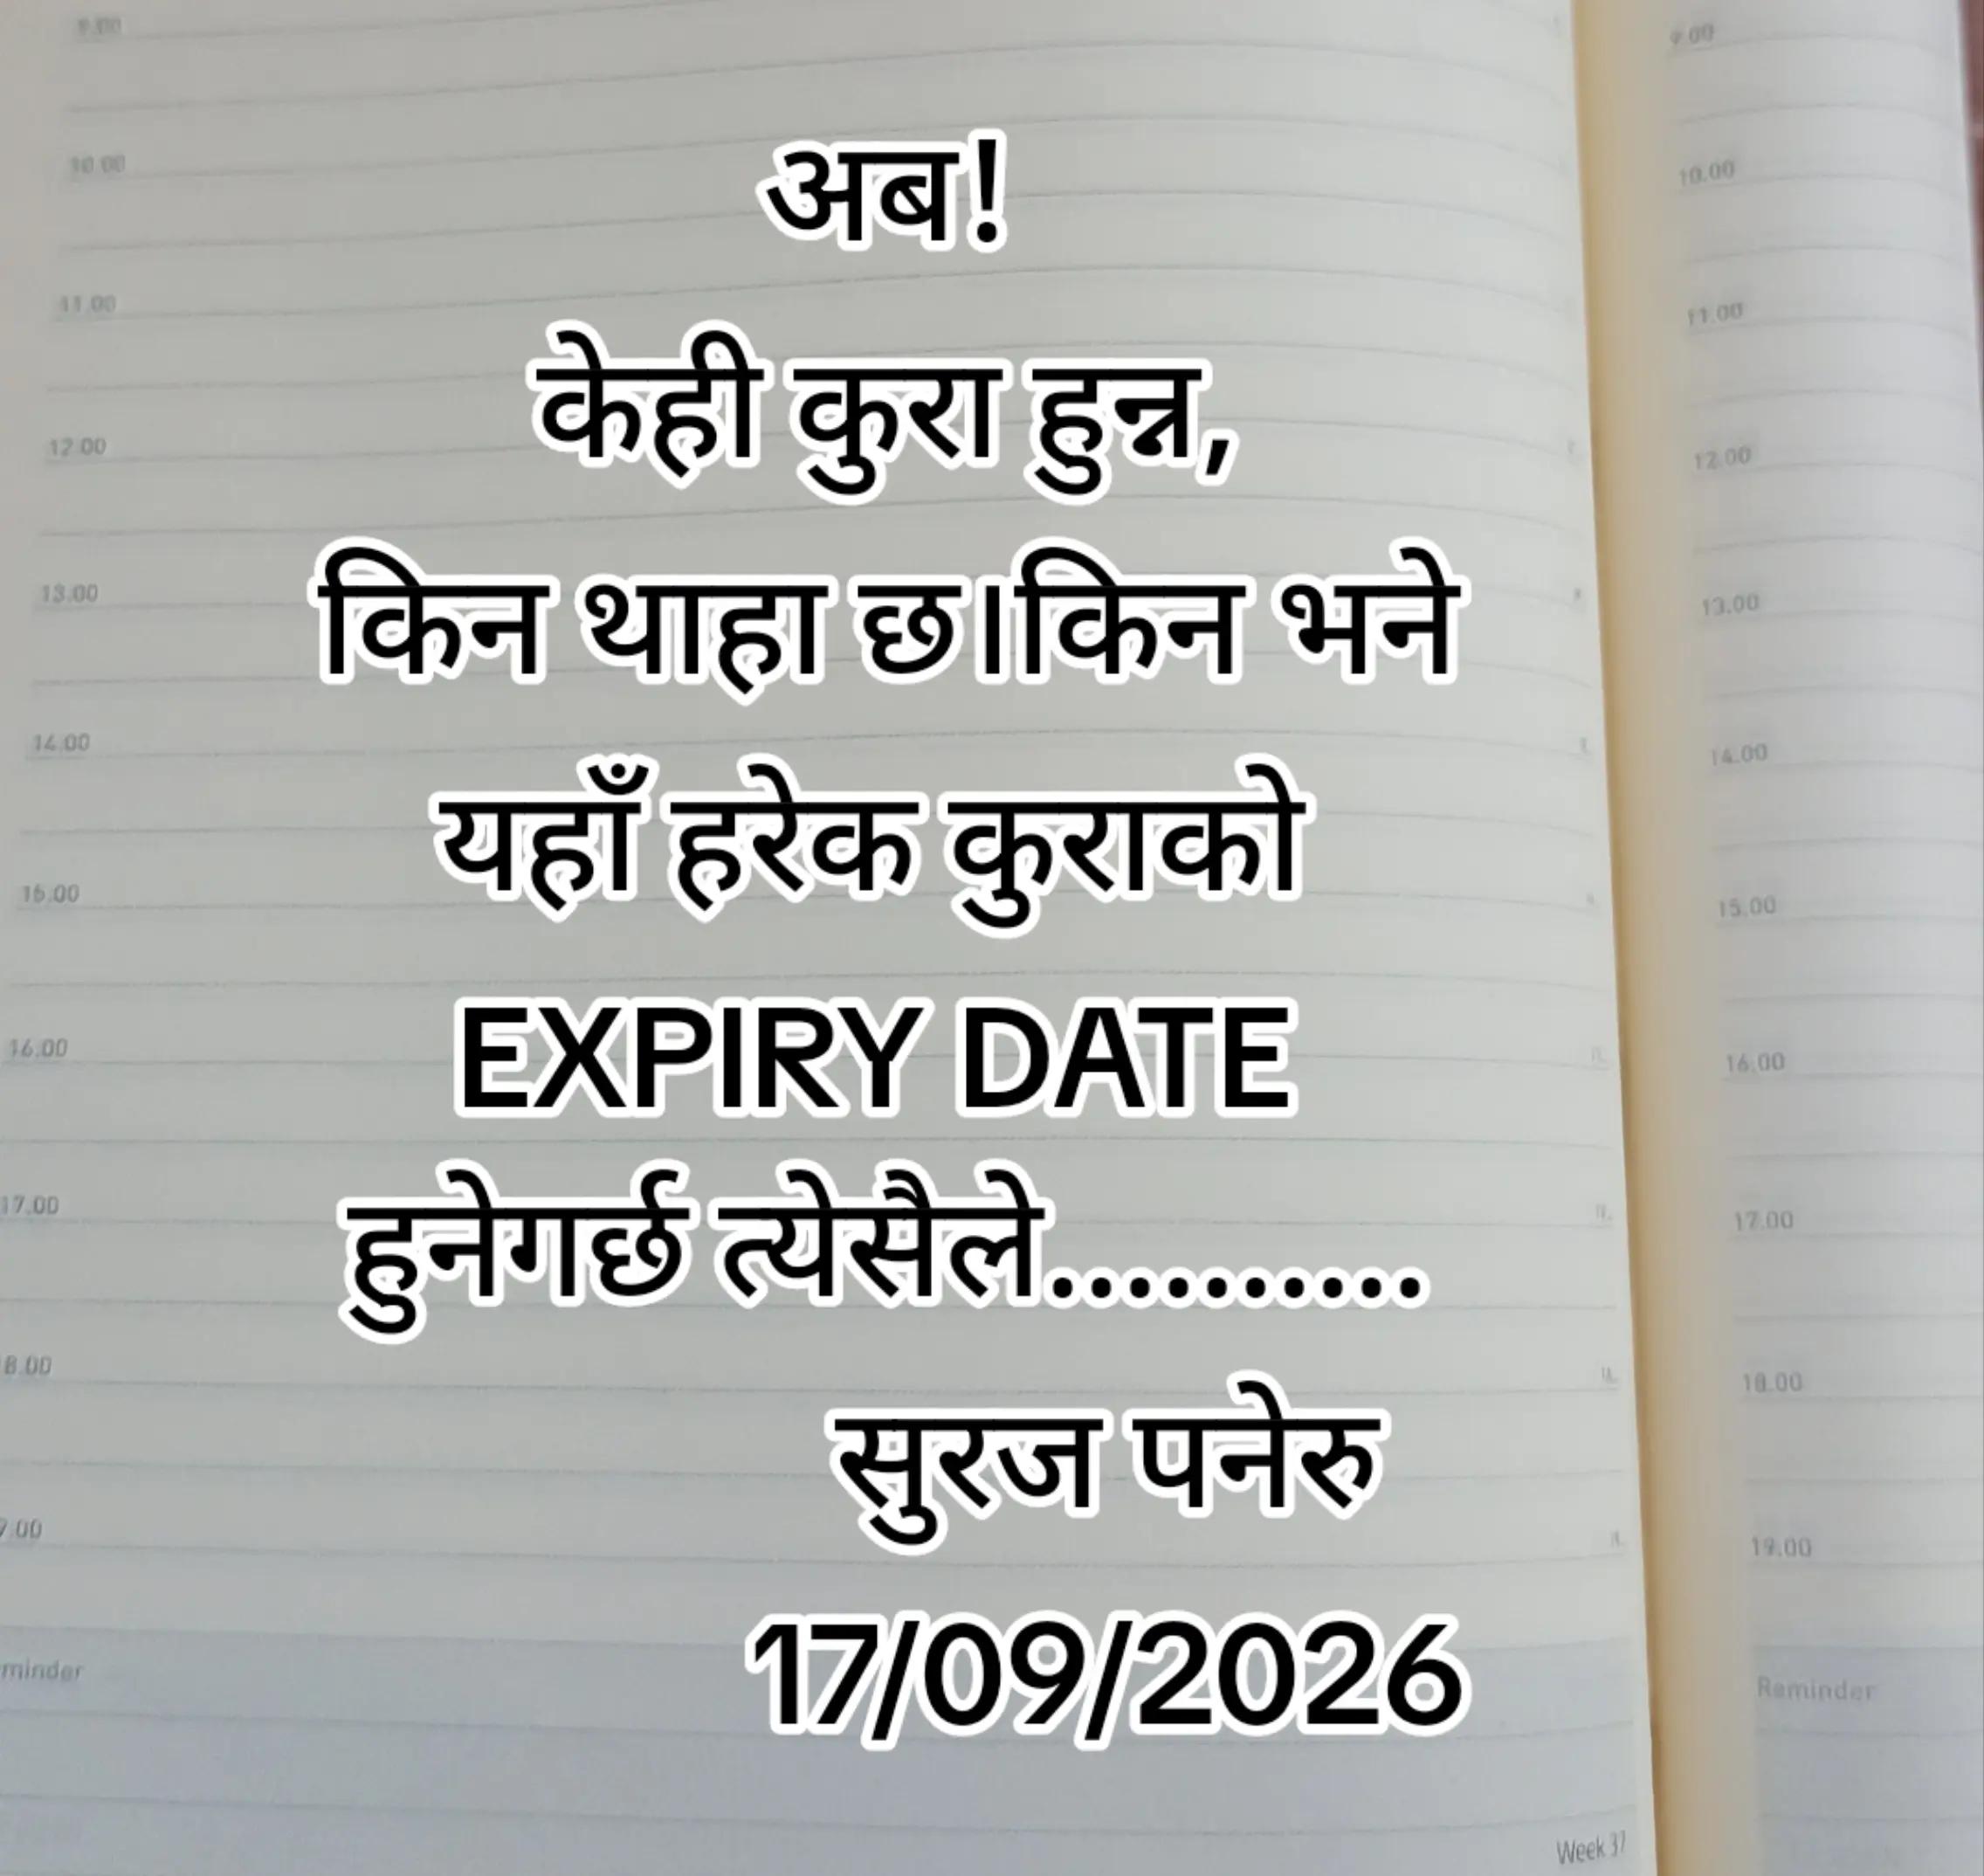 9.00
9.00
10.00
10.00
11.00
11.00
12.00
12.00
13.00
13.00
14.00
14.00
15.00
15.00
16.00
16.00
17.00
17.00
8.00
18.00
9.00
19.00
minder
Reminder
Week 37
अब!
केही कुरा हुन्न,
किन थाहा छ।किन भने
यहाँ हरेक कुराको
EXPIRY DATE
हुनेगर्छ त्येसैले..........
सुरज पनेरु
17/09/2026